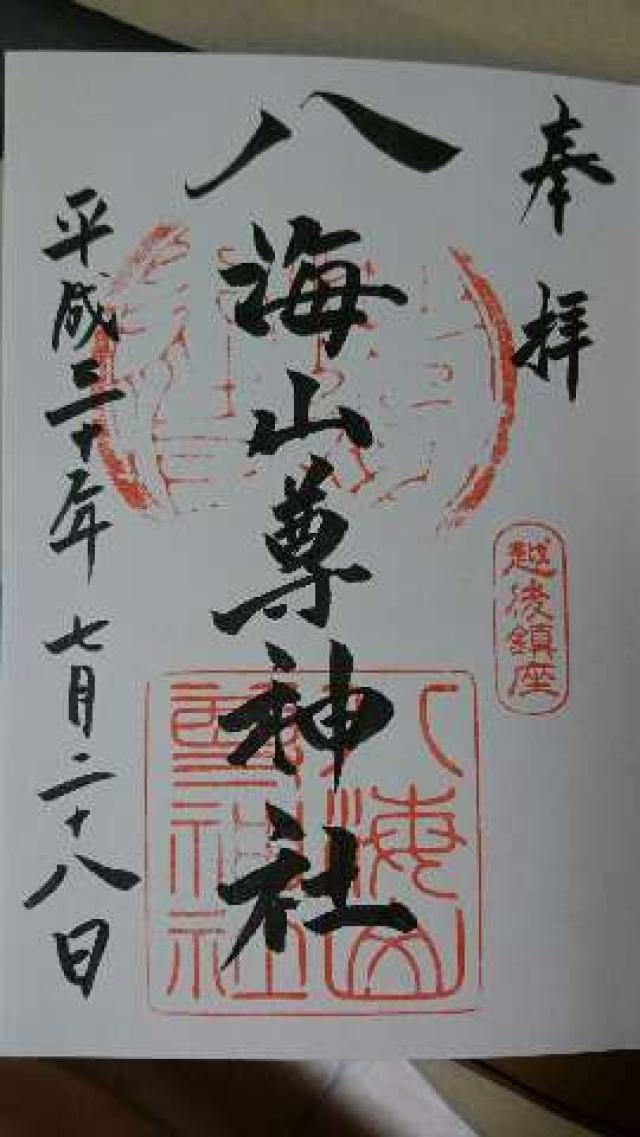 奉拝
越後鎮座
八海山尊神社
平成三十年七月二十八日